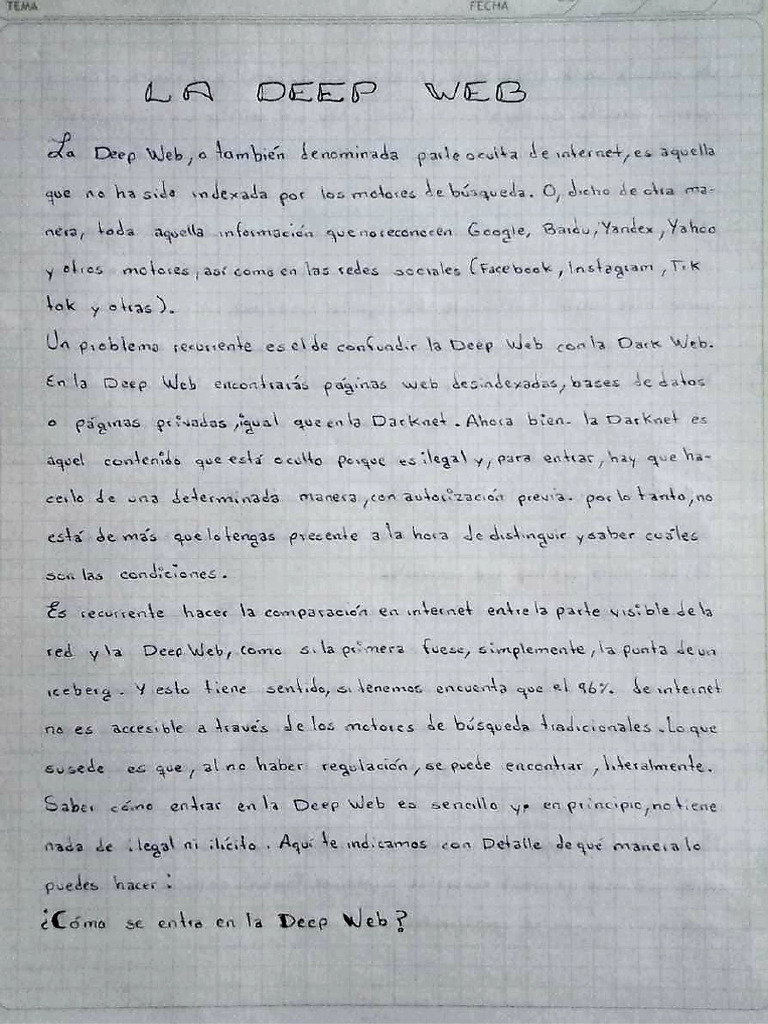 TEMA FECHA
LA DEEP WEB
La Deep Web, o también denominada parte oculta de internet, es aquella
que no ha sido indexada por los motores de búsqueda. O, dicho de otra ma-
nera, toda aquella información que no reconocen Google, Baidu, Yandex, Yahoo
y otros motores, así como en las redes sociales (Facebook, Instagram, Tik
tok y otras).
Un problema recurrente es el de confundir la Deep Web con la Dark Web.
En la Deep Web encontrarás páginas web desindexadas, bases de datos
o páginas privadas, igual que en la Darknet. Ahora bien. la Darknet es
aquel contenido que está oculto porque es ilegal y, para entrar, hay que ha-
cerlo de una determinada manera, con autorización previa. por lo tanto, no
está de más que lo tengas precente a la hora de distinguir y saber cuáles
son las condiciones.
Es recurrente hacer la comparación en internet entre la parte visible de la
red y la Deep Web, como si la primera fuese, simplemente, la punta de un
iceberg. Y esto tiene sentido, si tenemos encuenta que el 96% de internet
no es accesible a través de los motores de búsqueda tradicionales. Lo que
susede es que, al no haber regulación, se puede encontrar, literalmente.
Saber cómo entrar en la Deep Web es sencillo y, en principio, no tiene
nada de ilegal ni ilícito. Aquí te indicamos con Detalle de qué manera lo
puedes hacer:
¿Cómo se entra en la Deep Web?